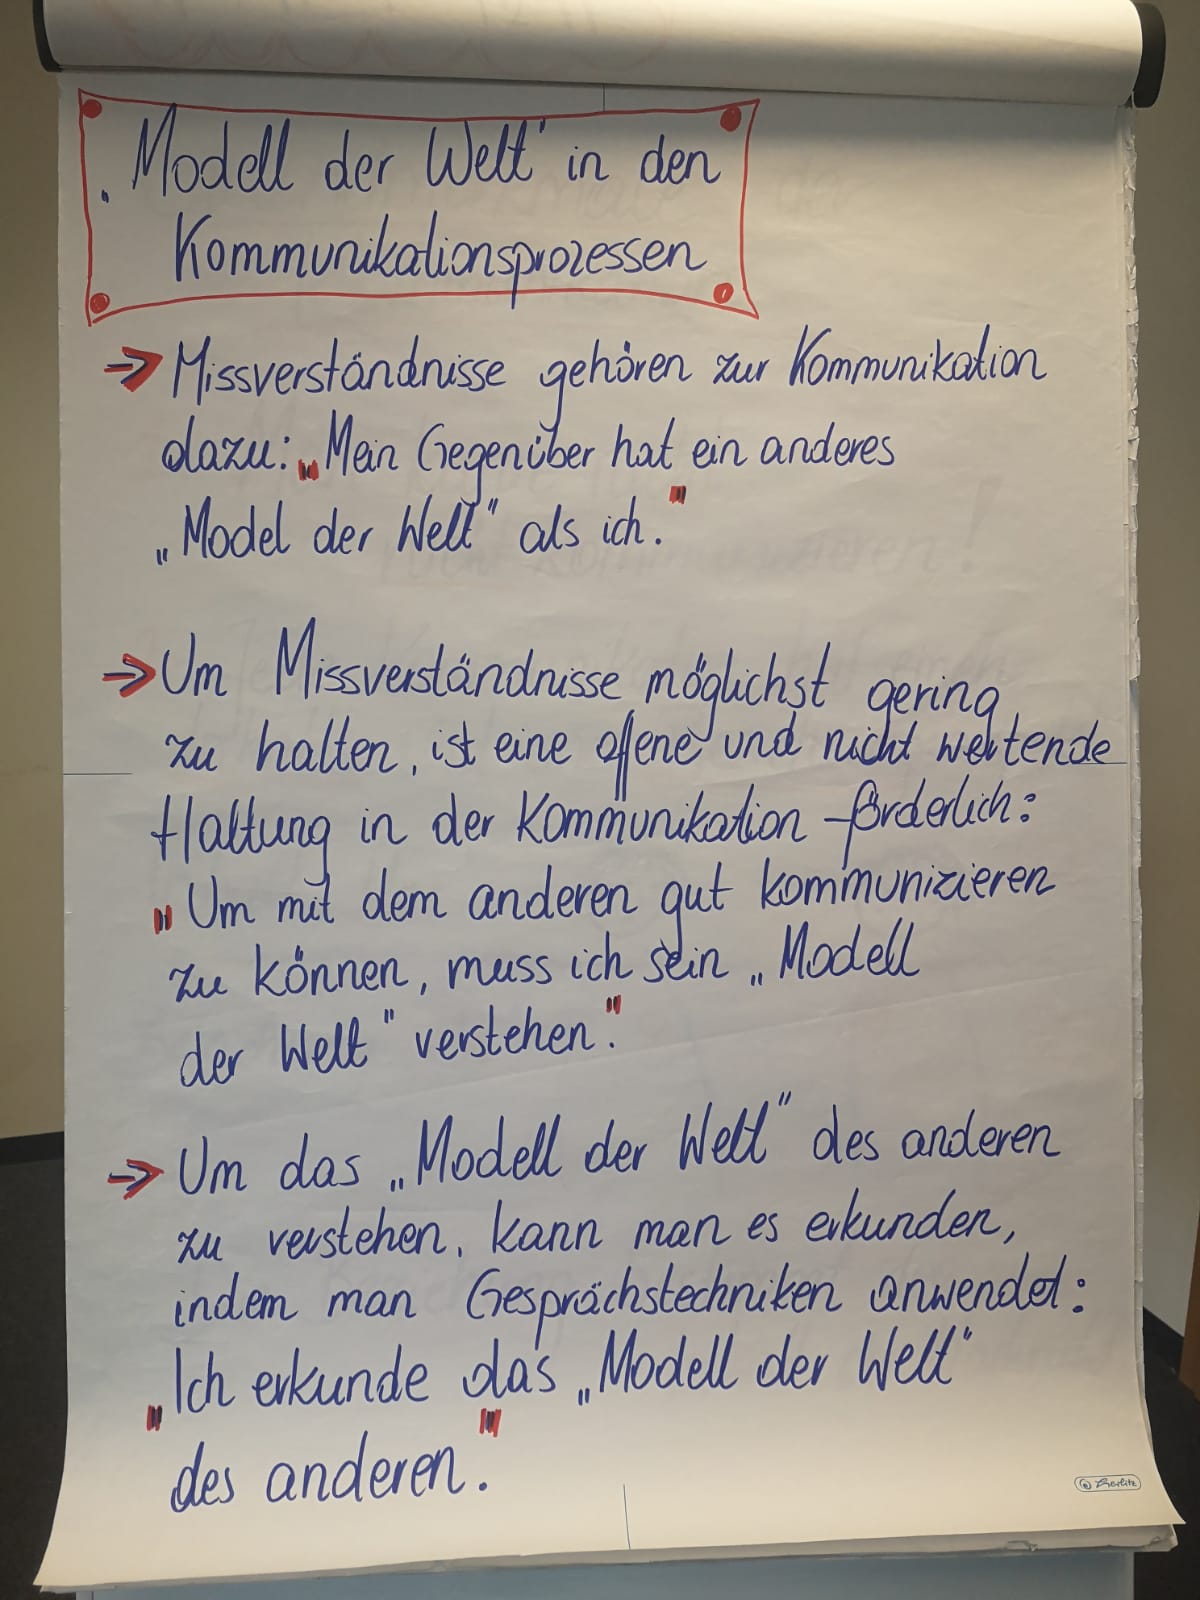 „Modell der Welt" in den
Kommunikationsprozessen
→ Missverständnisse gehören zur Kommunikation
dazu: „Mein Gegenüber hat ein anderes
„Model der Welt" als ich."
→ Um Missverständnisse möglichst gering
zu halten, ist eine offene und nicht wertende
Haltung in der Kommunikation förderlich:
"Um mit dem anderen gut kommunizieren
zu können, muss ich sein „Modell
der Welt" verstehen."
→ Um das „Modell der Welt" des anderen
zu verstehen, kann man es erkunden,
indem man Gesprächstechniken anwendet:
„Ich erkunde das „Modell der Welt"
des anderen."
Herlitz